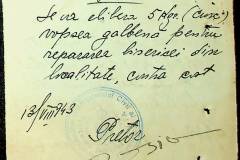 Se va elibera 5 kgr. (cinci)
vopsea galbenă pentru
repararea bisericei din
localitate, contra cost
13/VIII 943
Pretor